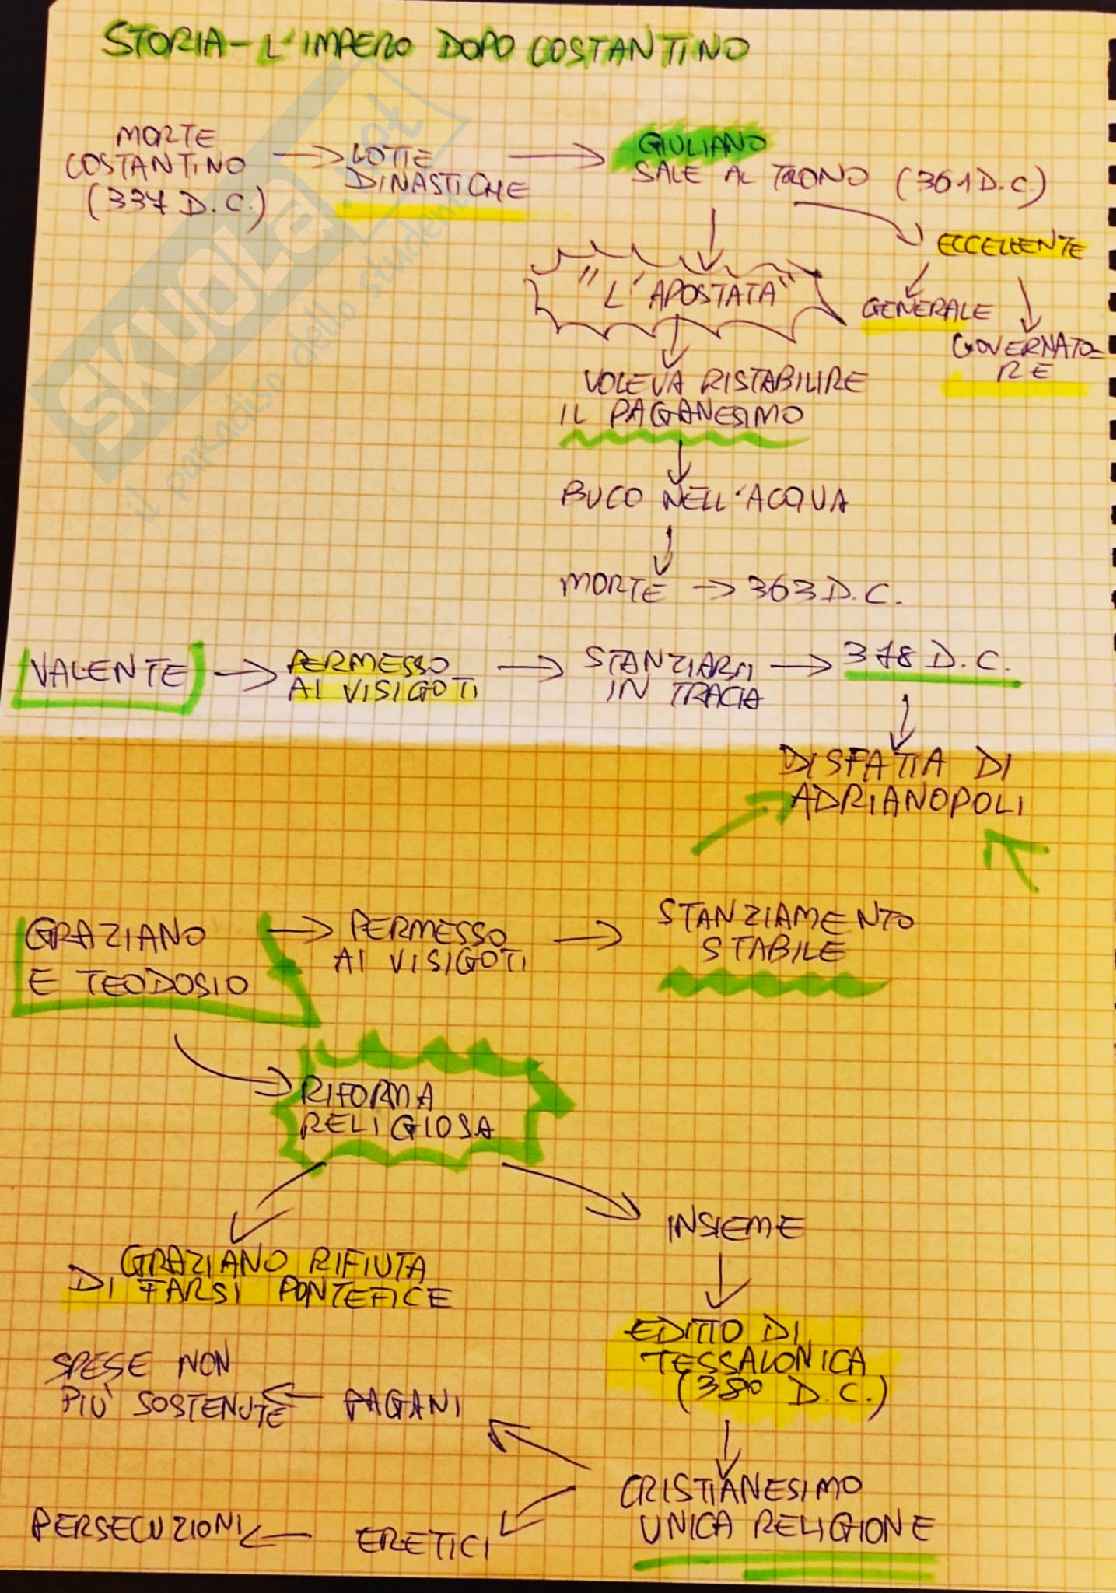 STORIA - L'IMPERO DOPO COSTANTINO
MORTE
COSTANTINO
(337 D.C.)
LOTTE
DINASTICHE
GIULIANO
SALE AL TRONO (361 D.C.)
ECCELLENTE
GENERALE
GOVERNATO-
RE
"L'APOSTATA"
VOLEVA RISTABILIRE
IL PAGANESIMO
BUCO NELL'ACQUA
MORTE → 363 D.C.
VALENTE
PERMESSO
AI VISIGOTI
STANZIARSI
IN TRACIA
378 D.C.
DISFATTA DI
ADRIANOPOLI
GRAZIANO
E TEODOSIO
PERMESSO
AI VISIGOTI
STANZIAMENTO
STABILE
RIFORMA
RELIGIOSA
GRAZIANO RIFIUTA
DI FARSI PONTEFICE
INSIEME
EDITTO DI
TESSALONICA
(380 D.C.)
CRISTIANESIMO
UNICA RELIGIONE
PAGANI
SPESE NON
PIÙ SOSTENUTE
ERETICI
PERSECUZIONI
SKUOLA.net
il paradiso dello studente